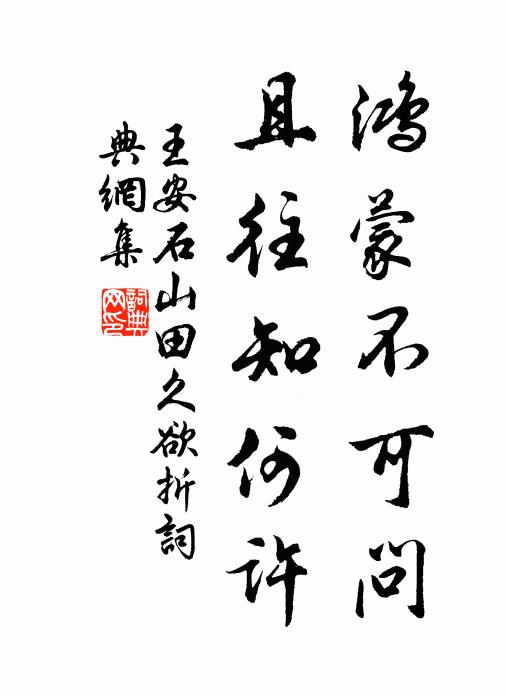 鸿蒙不可问
且往知何许
王安石山田久欲折詞
典網集
詞典
网印